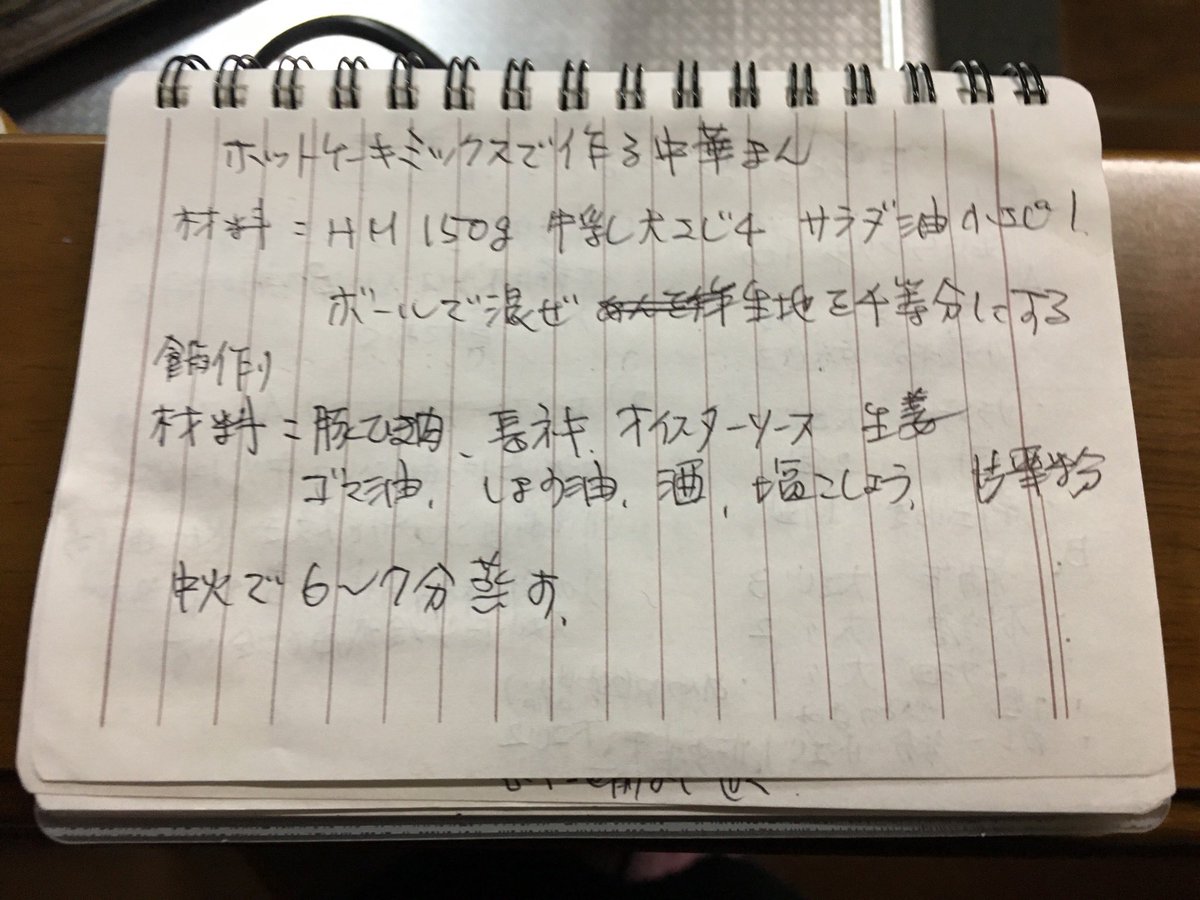 ホットケーキミックスで作る中華まん
材料=HM 150g 牛乳大さじ4 サラダ油小さじ1
ボールで混ぜ 生地を4等分にする
餡作り
材料=豚ひき肉、長ネギ、オイスターソース 生姜
ゴマ油、しょう油、酒、塩こしょう、
中火で6〜7分蒸す、